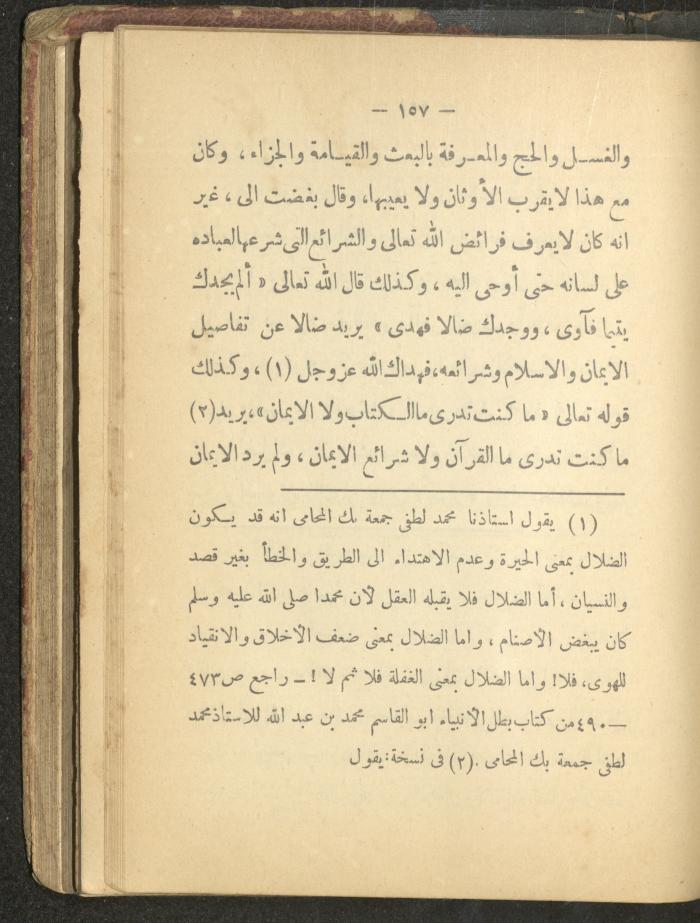 — ١٥٧ —
والغسل والحج والمعرفة بالبعث والقيامة والجزاء ، وكان
مع هذا لايقرب الأوثان ولا يعيبها، وقال بغضت الى ، غير
انه كان لايعرف فرائض الله تعالى والشرائع التى شرعها لعباده
على لسانه حتى أوحى اليه ، وكذلك قال الله تعالى « ألم يجدك
يتيما فآوى ، ووجدك ضالا فهدى » يريد ضالا عن تفاصيل
الايمان والاسلام وشرائعه، فهداك الله عز وجل (١) ، وكذلك
قوله تعالى « ما كنت تدرى ما الكتاب ولا الايمان»، يريد (٢)
ما كنت تدرى ما القرآن ولا شرائع الايمان ، ولم يرد الايمان
(١) يقول استاذنا محمد لطفى جمعة بك المحامى انه قد يكون
الضلال بمعنى الحيرة وعدم الاهتداء الى الطريق والخطأ بغير قصد
والنسيان ، أما الضلال فلا يقبله العقل لأن محمدا صلى الله عليه وسلم
كان يبغض الأصنام ، واما الضلال بمعنى ضعف الأخلاق والانقياد
للهوى، فلا! واما الضلال بمعنى الغفلة فلا ثم لا ! — راجع ص ٤٧٣
— ٤٩٠ من كتاب بطل الأنبياء ابو القاسم محمد بن عبد الله للاستاذ محمد
لطفى جمعة بك المحامى . (٢) فى نسخة: يقول